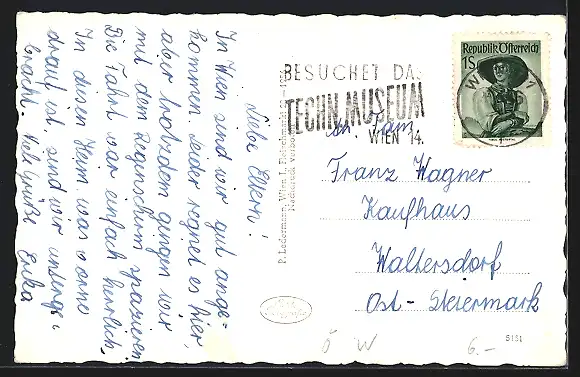 Liebe Eltern!
In Wien sind wir gut ange=
kommen. Leider regnet es hier,
aber trotzdem gingen wir
mit dem Regenschirm spazieren.
Die Fahrt war einfach herrlich.
In diesen Heim, was vorne
drauf ist, sind wir unterge=
bracht. Viel Grüße Erika
P. Ledermann, Wien I, Fleischmarkt
Nachdruck verboten
BESUCHET DAS
TECHN. MUSEUM
WIEN 14.
Republik Österreich
1 S
WIEN 1
An Fam.
Franz Wagner
Kaufhaus
Waltersdorf
Ost-Steiermark
Ö W
6.-
5151